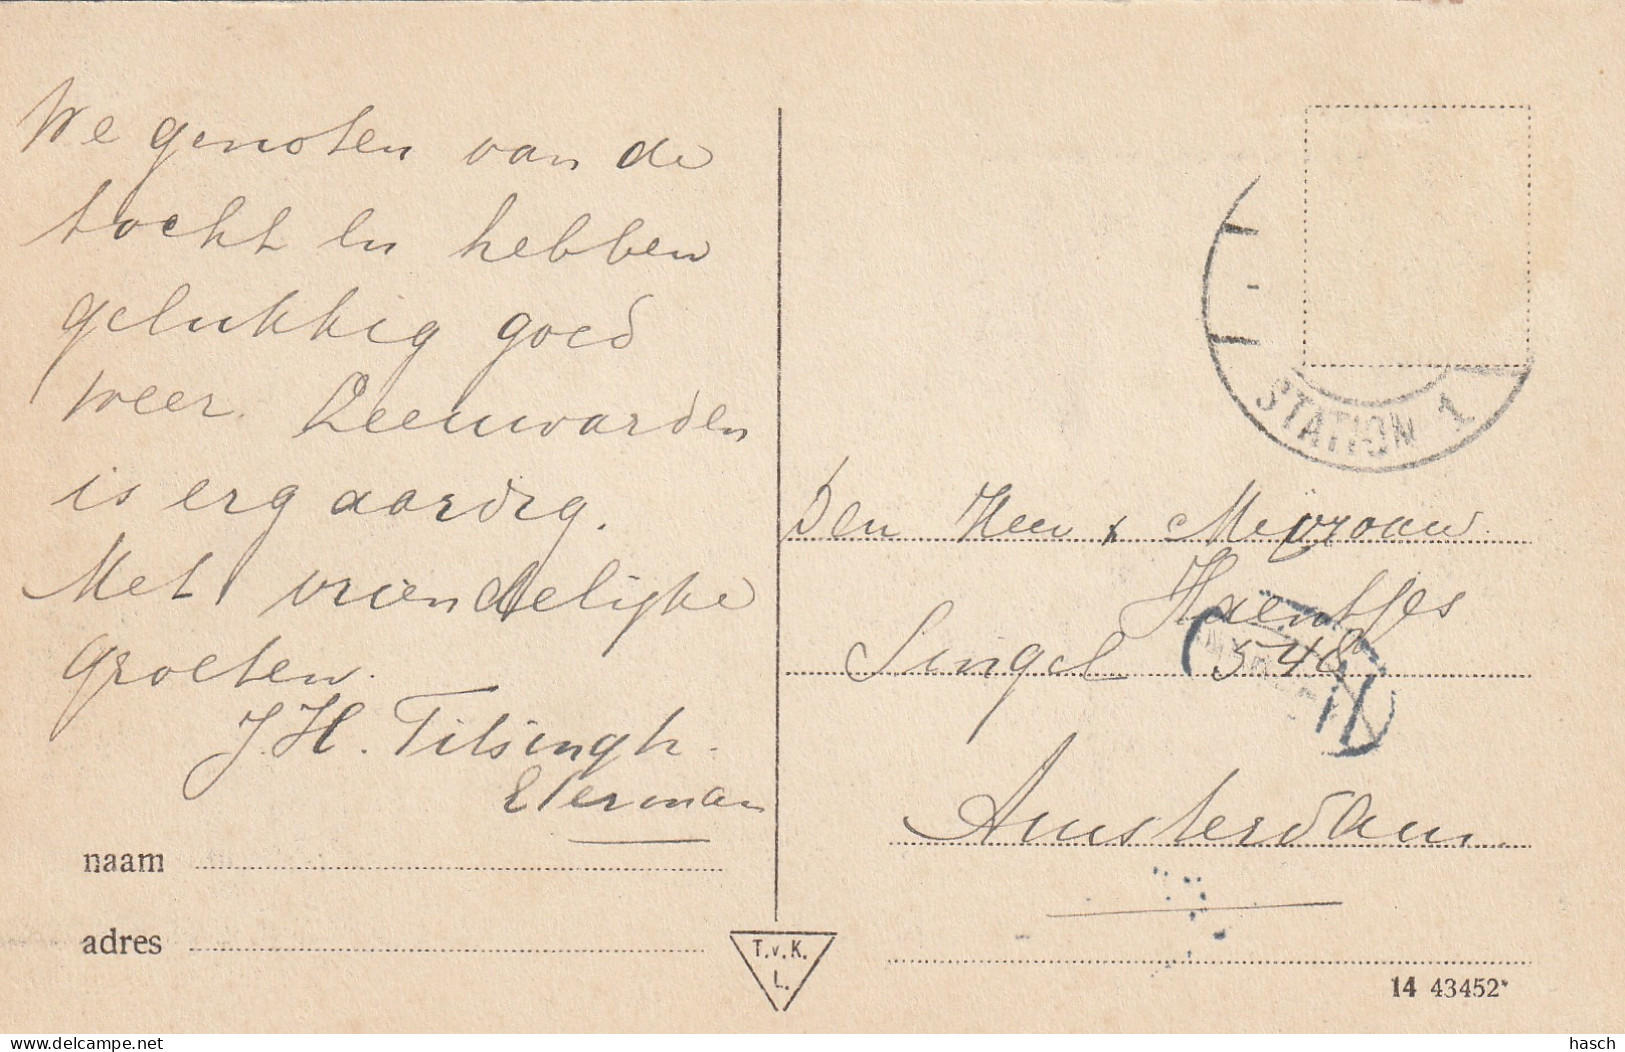 We genoten van de
tocht en hebben
gelukkig goed
weer. Leeuwarden
is erg aardig.
Met vriendelijke
groeten.
J. H. Tilsingh.
Elerman
naam
adres
T.v.K.
L.
STATION 1
Den Heer & Mevrouw
Haentjes
Singel 548
Amsterdam.
14 43452*
delcampe.net
hasch